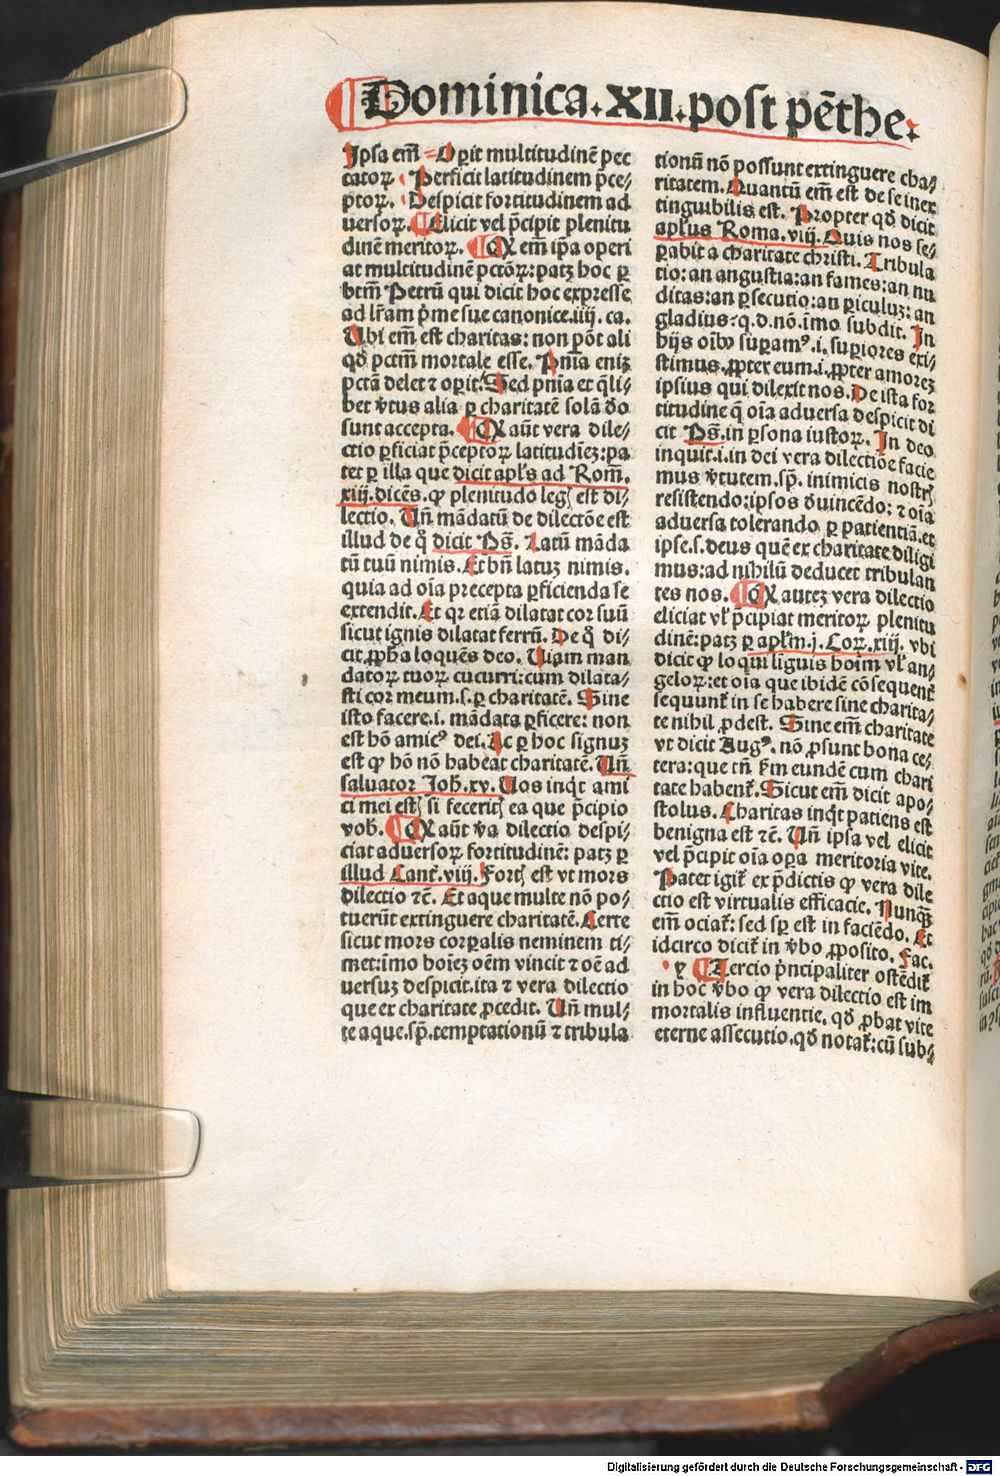 Dominica. XII. post pēthe.
Ipsa em̄ Oꝑit multitudinē pec
catoꝝ. Perficit latitudinem p̄ce⸗
ptoꝝ. Despicit fortitudinem ad
uersoꝝ. Elicit vel p̄cipit plenitu
dinē meritoꝝ. ¶ Qꝛ em̄ ip̄a operi
at multitudinē pctōꝝ: patꝫ hoc ꝑ
btm̄ Petrū qui dicit hoc expresse
ad lr̄am p̄me sue canonice. iiij. ca.
Ubi em̄ est charitas: non pōt ali
qđ pctm̄ mortale esse. Pn̄ia eniꝫ
pctā delet ⁊ oꝑit. Sed pn̄ia et q̄li⸗
bet v̄tus alia ꝑ charitatē solā dō
sunt accepta. ¶ Qꝛ aūt vera dile⸗
ctio ꝑficiat p̄ceptoꝝ latitudīeꝫ: pa
tet ꝑ illa que dicit apl̄s ad Rom̄.
xiij. dicēs. ꝙ plenitudo legꝭ est di⸗
lectio. Un̄ mādatū de dilectōe est
illud de q̄ dicit Ps̄. Latū māda
tū tuū nimis. Et bn̄ latuꝫ nimis.
quia ad oīa precepta ꝑficienda se
extendit. Et qꝛ etiā dilatat cor suū
sicut ignis dilatat ferrū. De q̄ di⸗
cit ꝓpha loquēs deo. Uiam man
datoꝝ tuoꝝ cucurri: cum dilata⸗
sti cor meum. s. ꝑ charitatē. Sine
isto facere. i. mādata ꝑficere: non
est hō amicꝰ dei. Ac ꝑ hoc signuꝫ
est ꝙ hō nō habeat charitatē. Un̄
saluator Joh. xv. Uos inqͥt ami
ci mei estꝭ si feceritꝭ ea que p̄cipio
vob̄. ¶ Qꝛ aūt v̄a dilectio despi⸗
ciat aduersoꝝ fortitudinē: patꝫ ꝑ
illud Cant̄. viij. Fortꝭ est vt mors
dilectio ⁊c̄. Et aque multe nō po⸗
tuerūt extinguere charitatē. Certe
sicut mors corꝑalis neminem ti⸗
met: īmo hoīeꝫ oēm vincit ⁊ oē ad
uersuꝫ despicit. ita ⁊ vera dilectio
que ex charitate ꝓcedit. Un̄ mul⸗
te aque. sp̄. temptationū ⁊ tribula
tionū nō possunt extinguere cha⸗
ritatem. Quantū em̄ est de se inex
tinguibilis est. Propter qđ dicit
apl̄us Roma. viij. Quis nos se⸗
parabit a charitate christi. Tribula
tio: an angustia: an fames: an nu
ditas: an ꝑsecutio: an ꝑiculuꝫ: an
gladius: q. d. nō. īmo subdit. In
hijs oībꝰ suꝑamꝰ. i. suꝑiores exi⸗
stimus. ꝓpter eum. i. ꝓpter amoreꝫ
ipsius qui dilexit nos. De ista for
titudine q̄ oīa aduersa despicit di
cit Ps̄. in ꝑsona iustoꝝ. In deo
inquit. i. in dei vera dilectiōe facie
mus v̄tutem. sp̄. inimicis nostrꝭ
resistendo: ipsos ðuincēdo: ⁊ oīa
aduersa tolerando ꝑ patientiā. et
ipse. s. deus quē ex charitate diligi
mus: ad nihilū deducet tribulan
tes nos. ¶ Qꝛ auteꝫ vera dilectio
eliciat vl̓ p̄cipiat meritoꝝ plenitu
dinē: patꝫ ꝑ apl̄m. j. Coꝝ. xiij. vbi
dicit ꝙ loqui liguis hoīm vl̓ an⸗
geloꝝ: et oīa que ibidē cōsequent̄
sequunt̄ in se habere sine charita⸗
te nihil ꝓdest. Sine em̄ charitate
vt dicit Augꝰ. nō ꝓsunt bona ce⸗
tera: que tn̄ fm̄ eundē cum chari
tate habent̄. Sicut em̄ dicit apo⸗
stolus. Charitas inqͥt patiens est
benigna est ⁊c̄. Un̄ ipsa vel elicit
vel p̄cipit oīa oꝑa meritoria vite.
Patet igit̄ ex p̄dictis ꝙ vera dile
ctio est virtualis efficacie. Nunqꝫ
em̄ ociat̄: sed sp̄ est in faciēdo. Et
idcirco dicit̄ in v̄bo ꝓposito. Fac.
¶ Tercio p̄ncipaliter ostēdit̄
in hoc v̄bo ꝙ vera dilectio est im
mortalis influentie. qđ ꝓbat vite
eterne assecutio. qđ notat̄: cū sub⸗
Digitalisierung gefördert durch die Deutsche Forschungsgemeinschaft - DFG